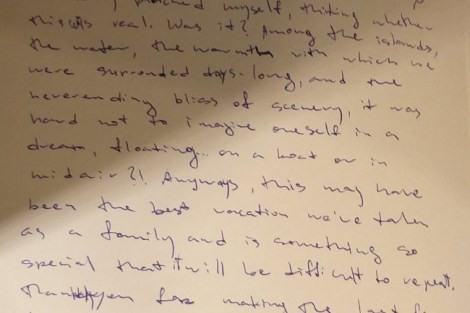 pinched myself, thinking whether
this is real. Was it? Among the islands,
the water, the warmth with which we
were surrounded days-long, and the
neverending bliss of scenery, it was
hard not to imagine oneself in a
dream, floating.. on a boat or in
midair?! Anyways, this may have
been the best vacation we've taken
as a family and is something so
special that it will be difficult to repeat.
Thank you for making the last